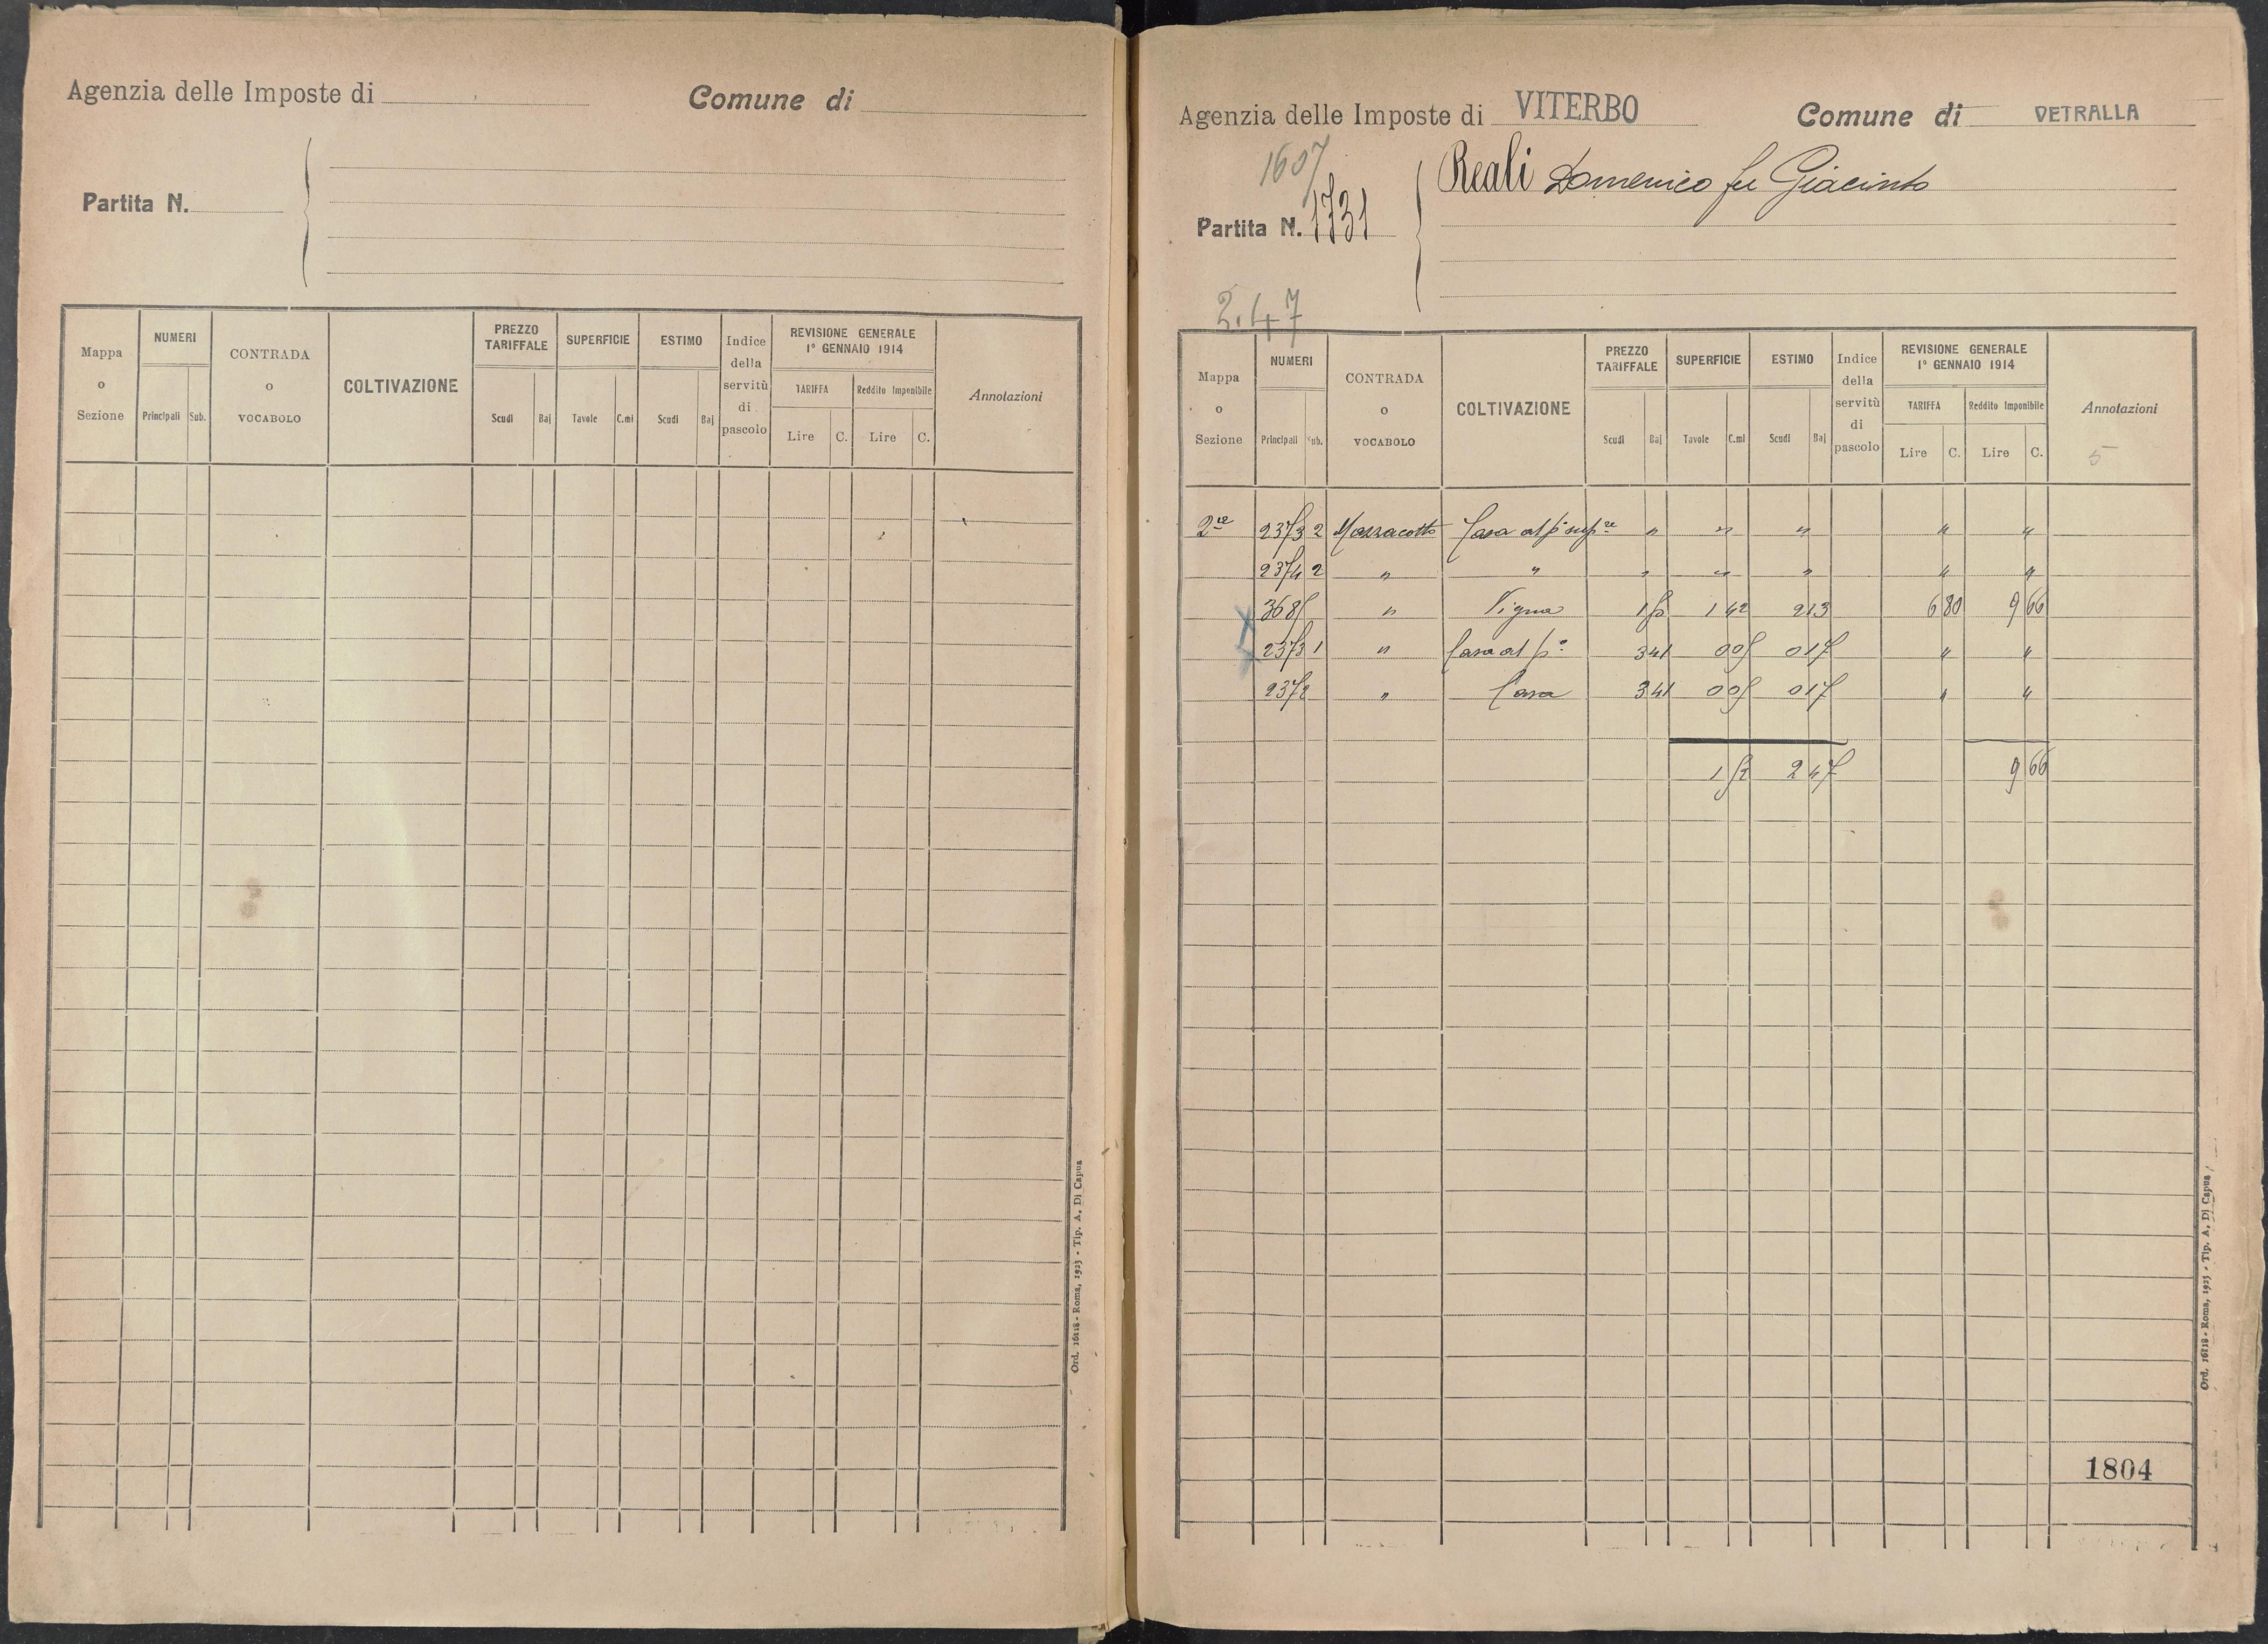 Agenzia delle Imposte di
Comune di
Partita N.
Mappa o Sezione
NUMERI
Principali
Sub.
CONTRADA o VOCABOLO
COLTIVAZIONE
PREZZO TARIFFALE
Scudi
Baj
SUPERFICIE
Tavole
C.mi
ESTIMO
Scudi
Baj
Indice della servitù di pascolo
REVISIONE GENERALE
1° GENNAIO 1914
TARIFFA
Lire
C.
Reddito Imponibile
Lire
C.
Annotazioni
Ord. 16118 - Roma, 1923 - Tip. A. Di Capua
Agenzia delle Imposte di VITERBO
Comune di VETRALLA
1607
Partita N. 1731
Reali Domenico fu Giacinto
2.47
Mappa o Sezione
NUMERI
Principali
Sub.
CONTRADA o VOCABOLO
COLTIVAZIONE
PREZZO TARIFFALE
Scudi
Baj
SUPERFICIE
Tavole
C.mi
ESTIMO
Scudi
Baj
Indice della servitù di pascolo
REVISIONE GENERALE
1° GENNAIO 1914
TARIFFA
Lire
C.
Reddito Imponibile
Lire
C.
Annotazioni
5
2re 2373 2 Mazzacotto Casa al p° supre " " " " "
2374 2 " " " " " " "
3685 " Vigna 1 5 1 42 2 13 6 80 9 66
2373 1 " Casa al p° 3 41 0 05 0 17 " "
2372 " Casa 3 41 0 05 0 17 " "
1 52 2 47 9 66
1804
Ord. 16118 - Roma, 1923 - Tip. A. Di Capua